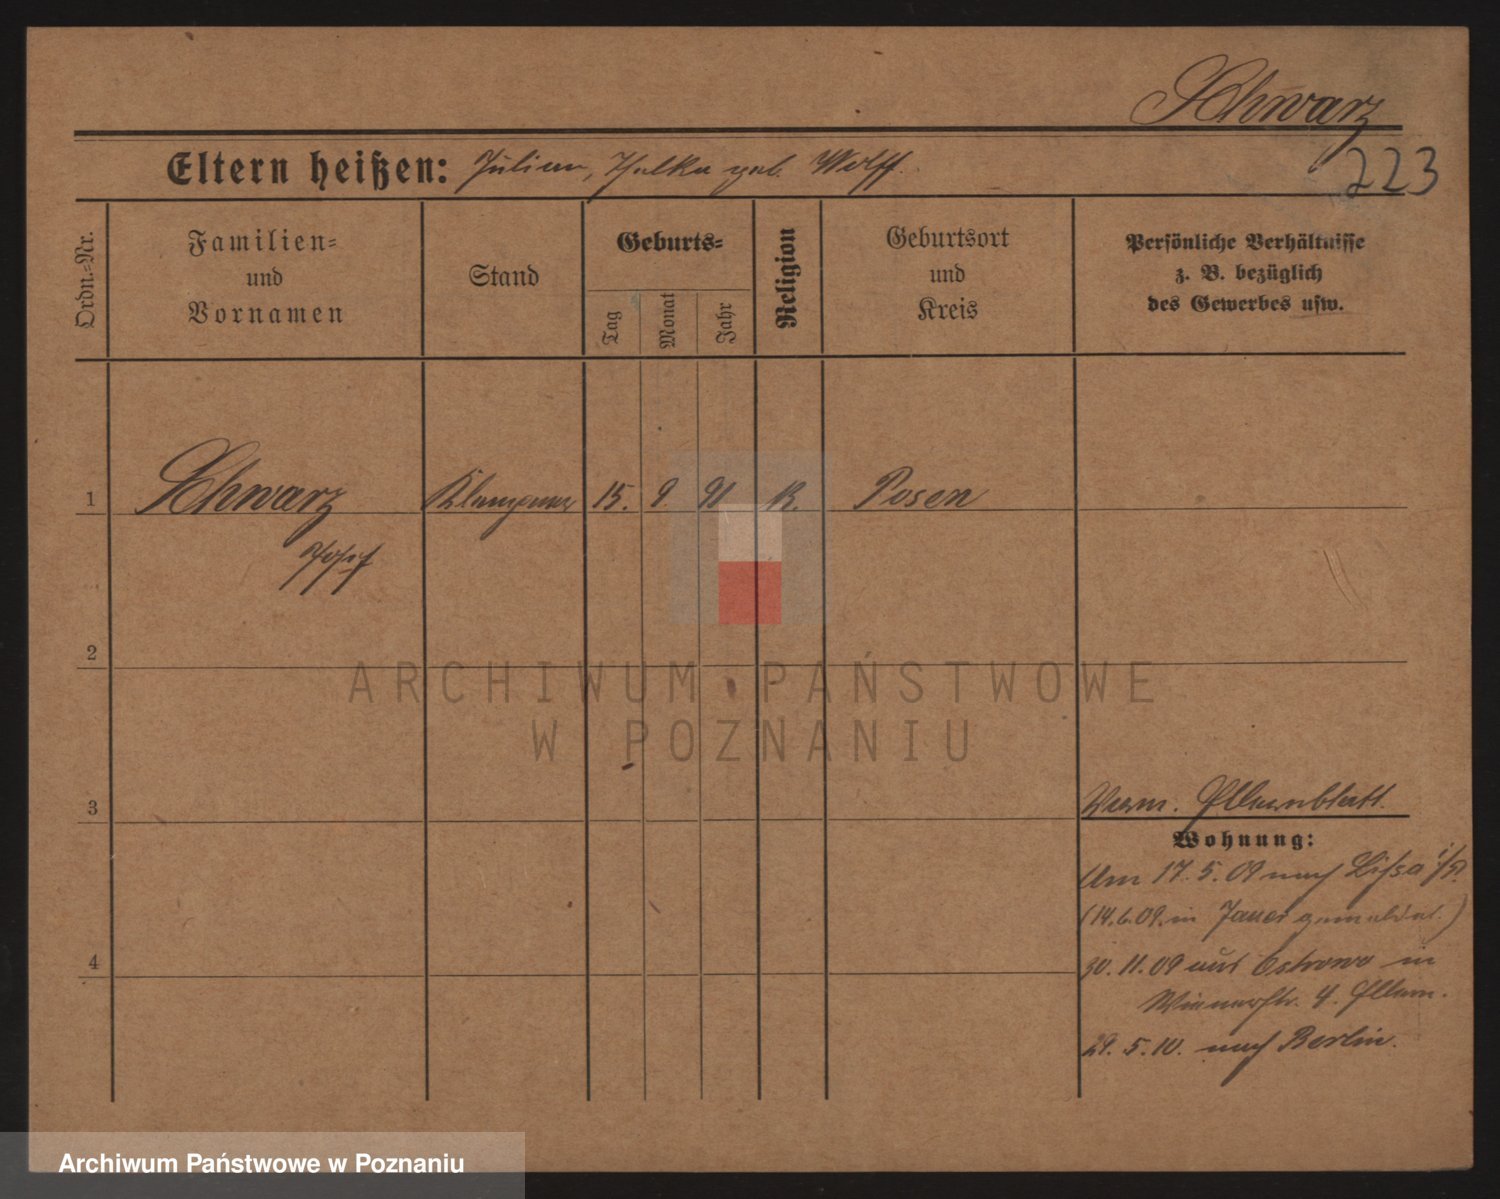 Schwarz
223
Eltern heißen: Julian, Thekla geb. Wolff.
Ordn.=Nr.
Familien=
und
Vornamen
Stand
Geburts=
Tag
Monat
Jahr
Religion
Geburtsort
und
Kreis
Persönliche Verhältnisse
z. B. bezüglich
des Gewerbes usw.
1 Schwarz Klempner 15. 9. 91 K. Posen
Josef
2
ARCHIWUM PAŃSTWOWE
W POZNANIU
3
Verm. Elternblatt.
Wohnung:
Am 17.5.09 nach Lissa i/P.
(14.6.09 in Jauer gemeldet.)
4
30.11.09 aus Ostrowo in
Wienerstr. 4. Eltern.
29.5.10. nach Berlin.
Archiwum Państwowe w Poznaniu